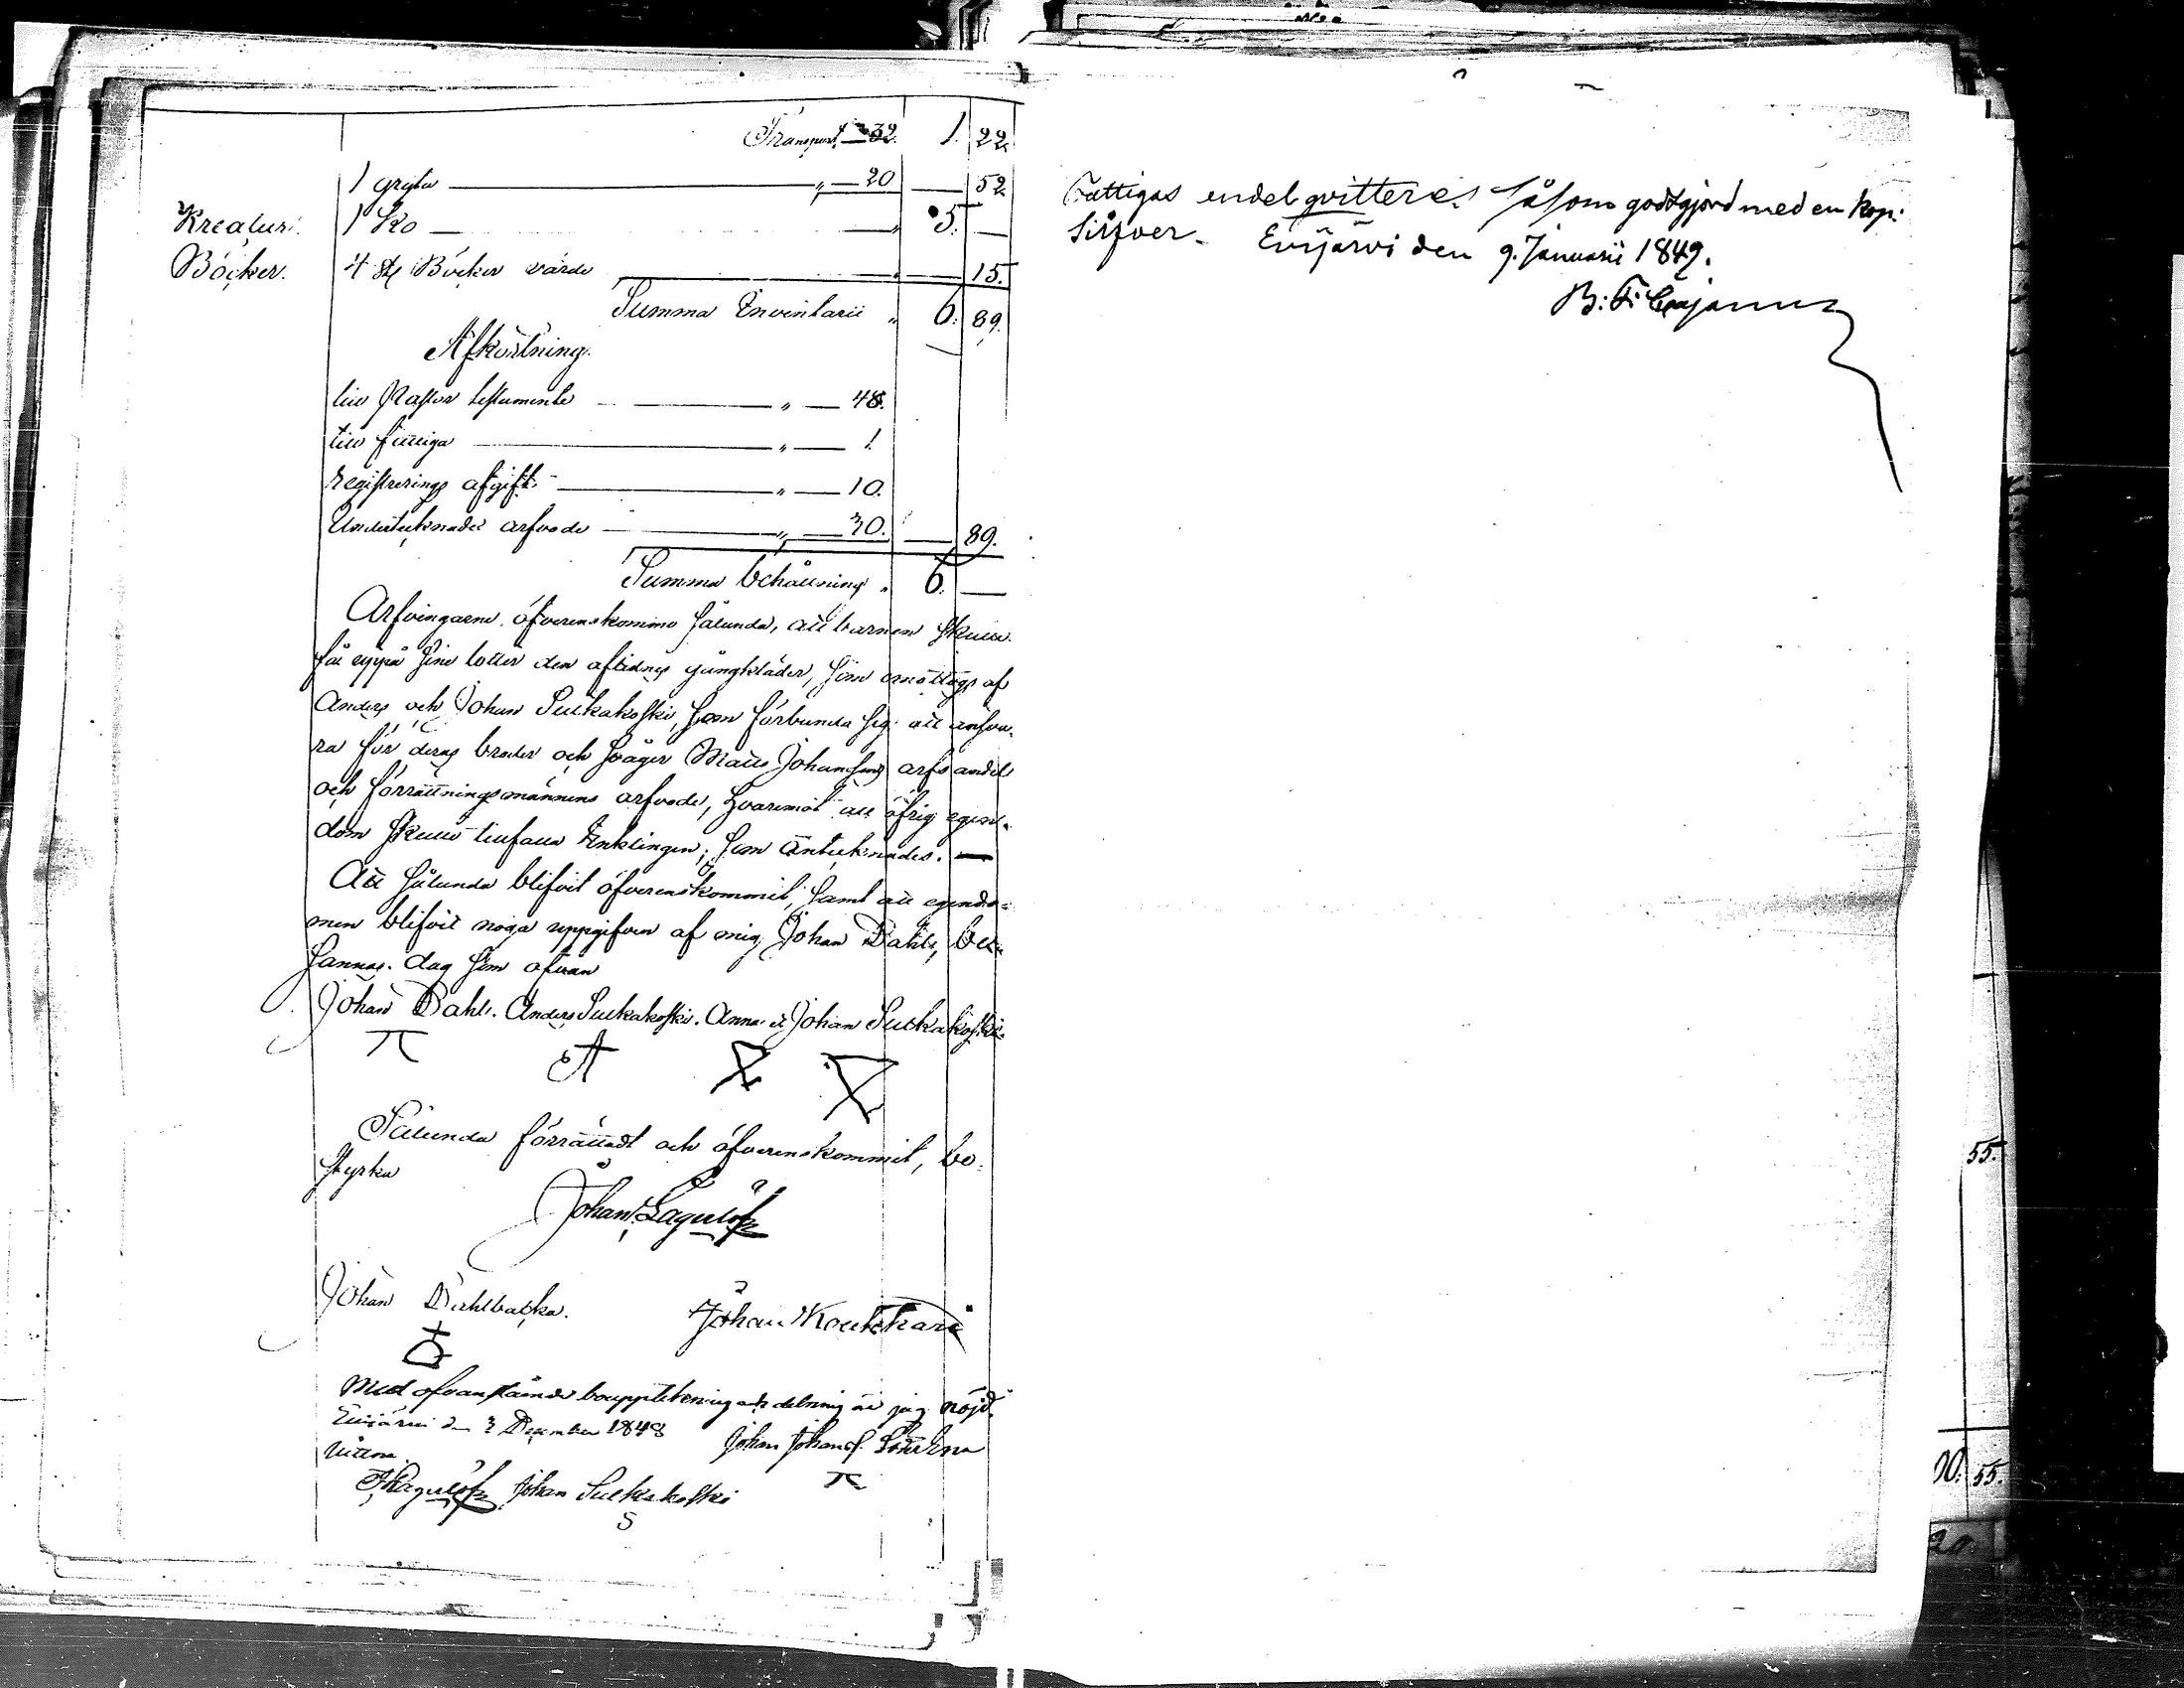 Transport " — 32. 1. 22.
1 gryta " — 20 — 52.
Kreatur. 1 Ko " 5. —
Böcker. 4 st. Böcker värde " — 15.
Summa Inventarii " 6. 89.
Afkortning.
till Pastor testamente " — 48.
till fattiga " — 1.
registrerings afgift " — 10.
Undertecknades arfvode " — 30. — 89.
Summa behållning " 6. —
Arfvingarne öfverenskommo sålunda, att barnen skulle
få uppå sine lotter den aflidnes gångkläder, som emottogs af
Anders och Johan Sulkakoski, som förbundo sig att ansva-
ra för deras broder och svåger Matts Johanssons arfs andel
och förrättningsmännens arfvode, hvaremot all öfrig egen-
dom skulle tillfalla Enklingen; som antecknades. —
Att sålunda blifvit öfverenskommit, samt att egendo-
men blifvit noga uppgifven af mig, Johan Dahl,
dag som ofvan
Johan Dahl. Anders Sulkakoski. Anna et Johan Sulkakoski.
Sålunda förrättadt och öfverenskommit, be-
styrka
Johan Lagerlöf
Johan Dahlbacka. Johan Koukkari
Med ofvanstående bouppteckning och delning är jag nöjd.
Evijärvi den 3 December 1848 Johan Johans.
Vittna.
Lagerlöf Johan Sulkakoski
S
Fattigas andel qvitteres såsom godtgjord med en kop:
Silfver. Evijärvi den 9. Januarii 1849.
B: F:
55.
00. 55.
20.